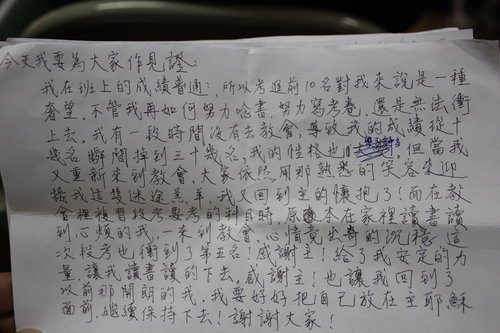 今天我要為大家作見證:
我在班上的成績普通,所以考進前10名對我來說是一種
奢望,不管我再如何努力唸書,努力寫考卷,還是無法衝
上去。我有一段時間沒有去教會,導致我的成績從十
幾名瞬間掉到三十幾名,我的性格也 但當我
又重新來到教會,大家依然用那熟悉的笑容來迎
接我這隻迷途羔羊,我又回到主的懷抱了!而在教
會裡複習段考要考的科目時,原本在家裡讀書讀
到心煩的我,一來到教會,心情竟出奇的沉穩,這
次段考也衝到了第五名!感謝主!給了我安定的力
量,讓我讀書讀的下去。感謝主!也讓我回到了
以前那開朗的我。我要好好把自己放在主耶穌
面前,繼續保持下去!謝謝大家!